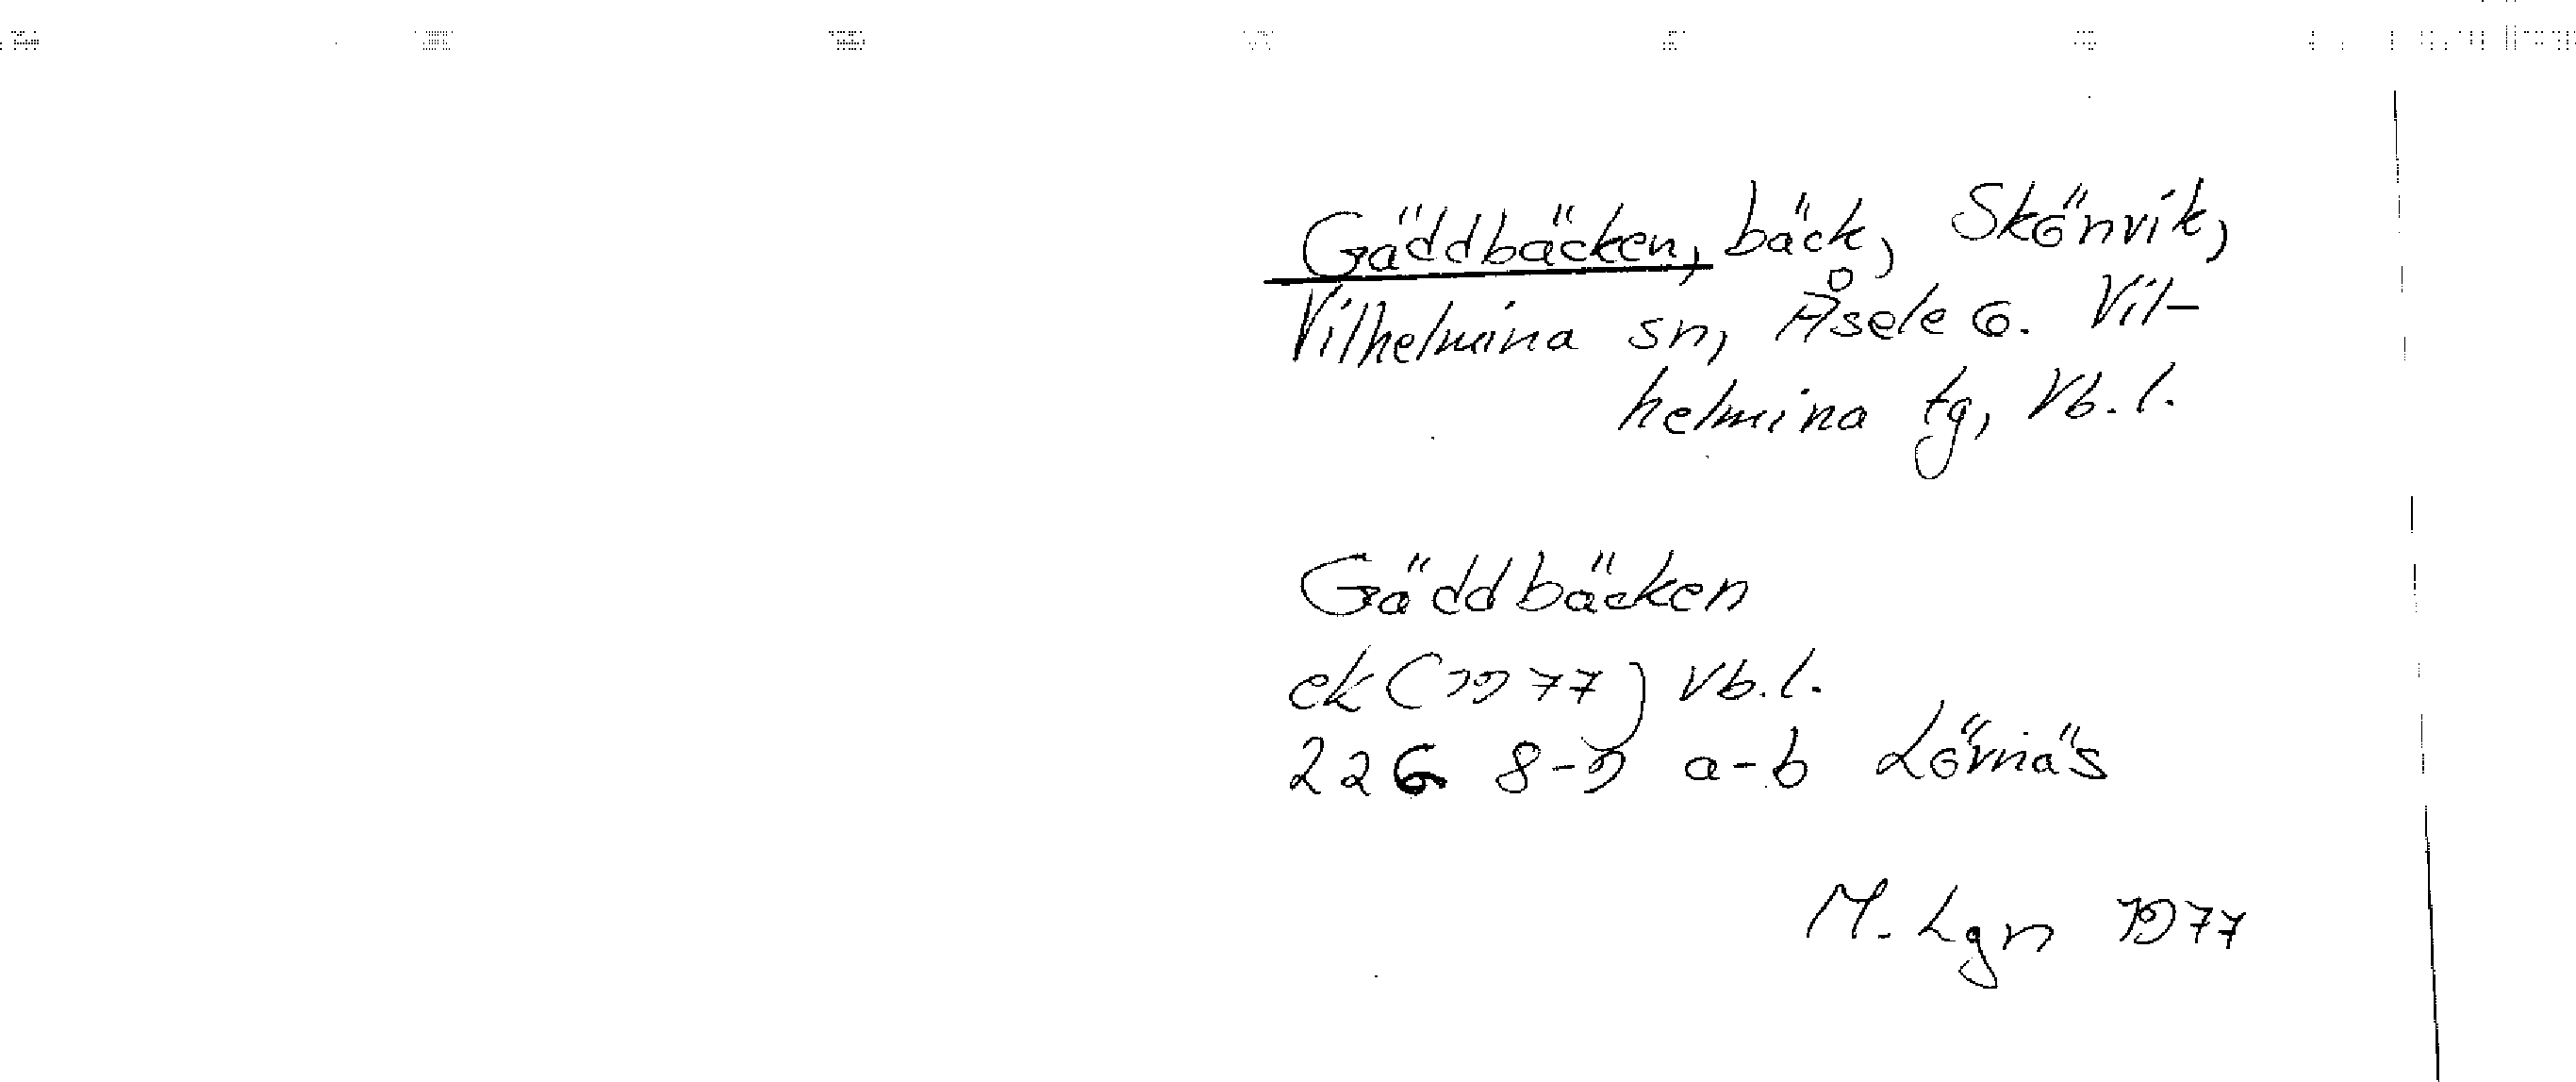 Gäddbäcken, bäck, Skönvik,
Vilhelmina sn, Åsele o. Vil-
helmina tg, Vb.l.
Gäddbäcken
ek (1977) Vb.l.
22G 8-9 a-b Lövnäs
M. Lgn 1977